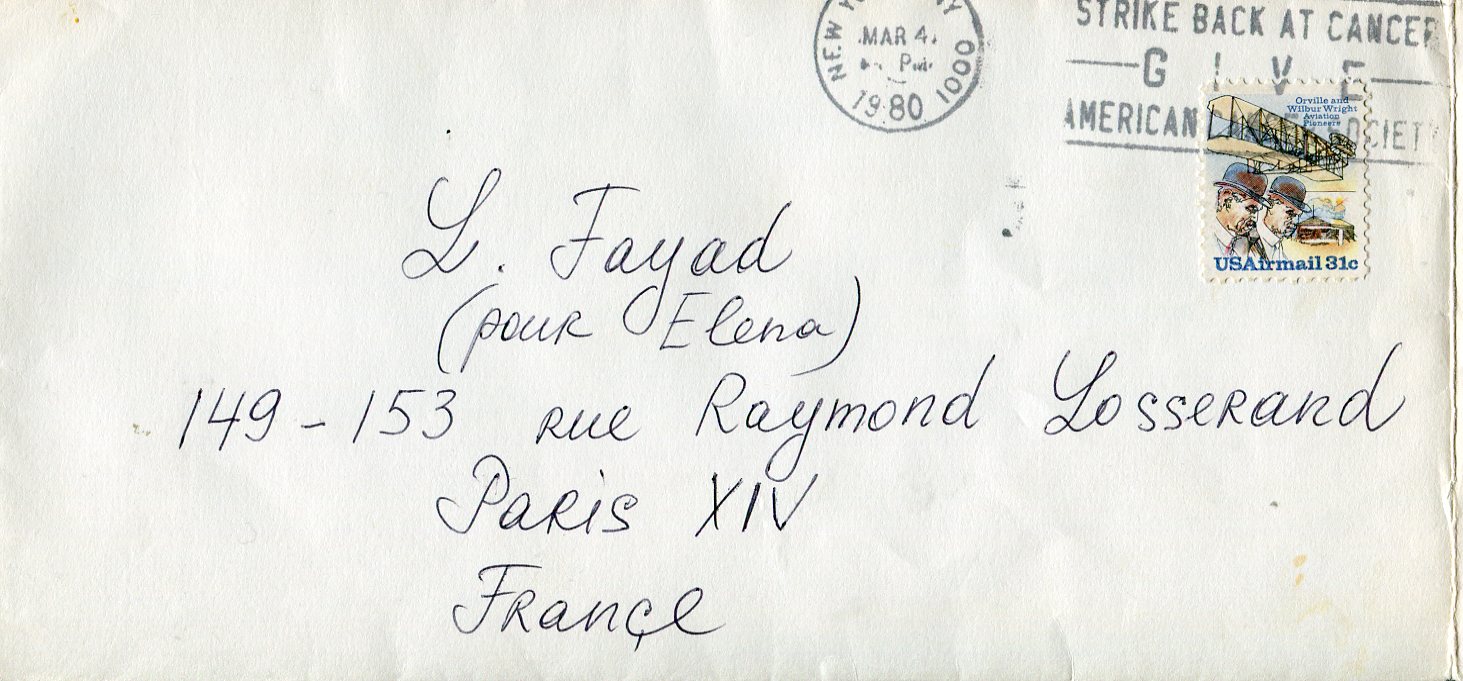 NEW YORK, NY 1000
MAR 4
PM
1980
STRIKE BACK AT CANCER
GIVE
AMERICAN SOCIETY
Orville and
Wilbur Wright
Aviation
Pioneers
USAirmail 31c
L. Fayad
(pour Elena)
149-153 rue Raymond Losserand
Paris XIV
Françe